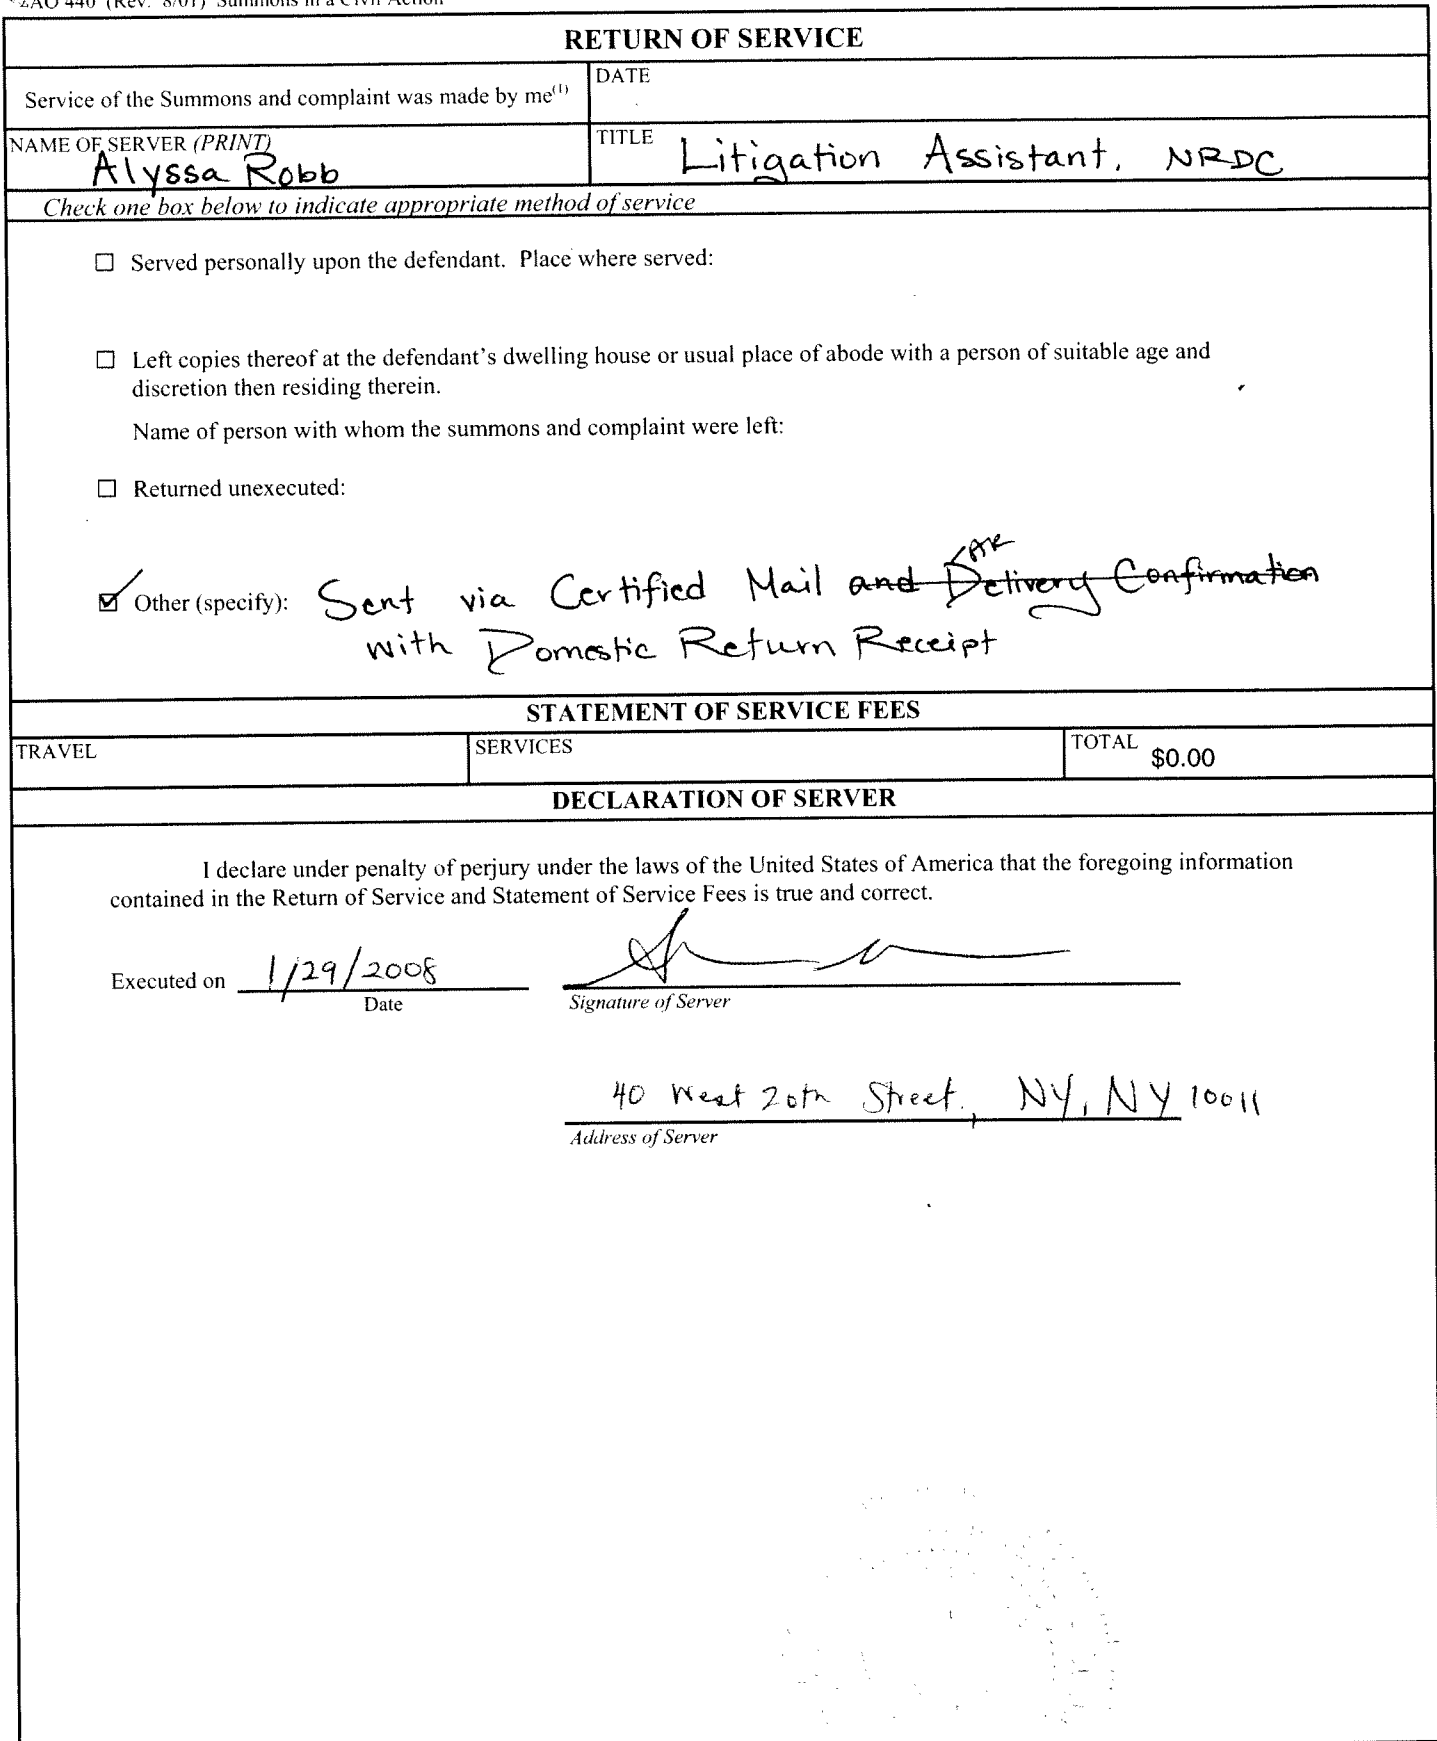 AO 440 (Rev. 8/01) Summons in a Civil Action
RETURN OF SERVICE
Service of the Summons and complaint was made by me(1)
DATE
NAME OF SERVER (PRINT)
Alyssa Robb
TITLE
Litigation Assistant, NRDC
Check one box below to indicate appropriate method of service
☐ Served personally upon the defendant. Place where served:
☐ Left copies thereof at the defendant's dwelling house or usual place of abode with a person of suitable age and
discretion then residing therein.
Name of person with whom the summons and complaint were left:
☐ Returned unexecuted:
AR
☑ Other (specify): Sent via Certified Mail and Delivery Confirmation
with Domestic Return Receipt
STATEMENT OF SERVICE FEES
TRAVEL
SERVICES
TOTAL
$0.00
DECLARATION OF SERVER
I declare under penalty of perjury under the laws of the United States of America that the foregoing information
contained in the Return of Service and Statement of Service Fees is true and correct.
Executed on 1/29/2008
Date
Signature of Server
40 West 20th Street, NY, NY 10011
Address of Server